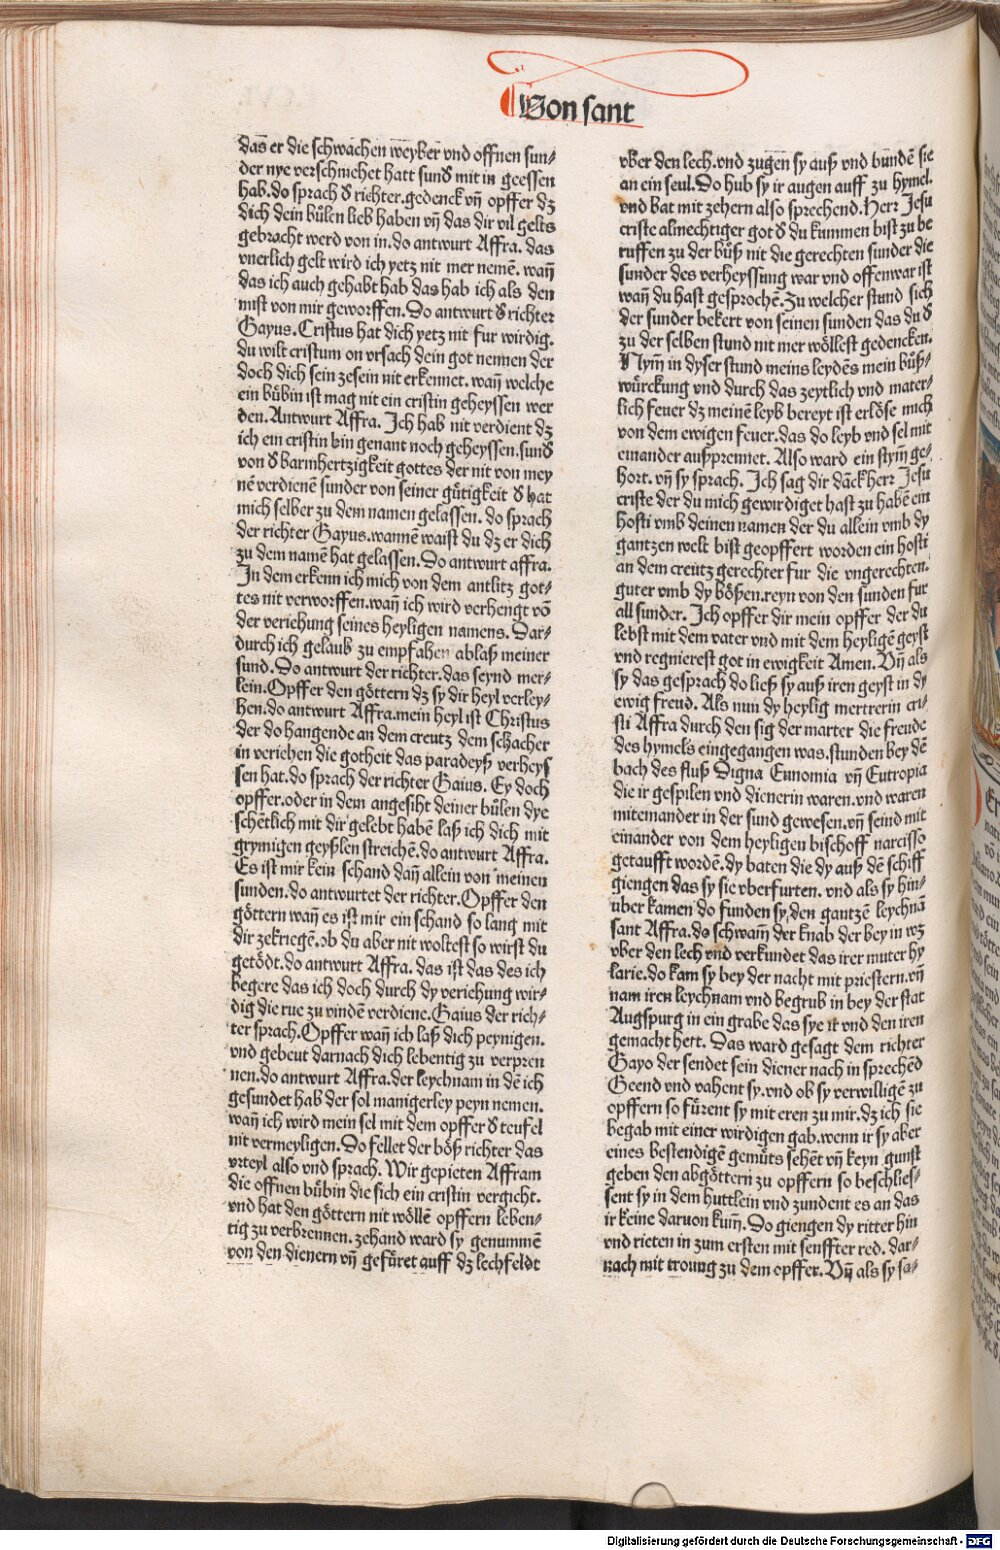 Von sant
das er die schwachen weyber vnd offnen sun⸗
der nye verschmehet hatt sunď mit in geessen
hab. do sprach ď richter. gedenck vn̄ opffer dz
dich dein bülen lieb haben vn̄ das dir vil gelts
gebracht werd von in. do antwurt Affra. das
vnerlich gelt wird ich yetz nit mer nemē. wan̄
das ich auch gehabt hab das hab ich als den
mist von mir geworffen. Do antwurt ď richter
Gayus. Cristus hat dich yetz nit fur wirdig.
du wilt cristum on vrsach dein got nennen der
doch dich sein zesein nit erkennet. wan̄ welche
ein bůbin ist mag nit ein cristin geheyssen wer
den. Antwurt Affra. Ich hab nit verdient dz
ich ein cristin bin genant noch geheyssen. sunď
von ď barmhertzigkeit gottes der nit von mey
nē verdienē sunder von seiner gůtigkeit ď hat
mich selber zu dem namen gelassen. do sprach
der richter Gayus. wannē waist du dz er dich
zu dem namē hat gelassen. Do antwurt affra.
In dem erkenn ich mich von dem antlitz got⸗
tes nit verworffen. wan̄ ich wird verhengt vō
der veriehung seines heyligen namens. Dar⸗
durch ich gelaub zu empfahen ablaß meiner
sund. Do antwurt der richter. das seynd mer⸗
lein. Opffer den göttern dz sy dir heyl verley⸗
hen. do antwurt Affra. mein heyl ist Christus
der do hangende an dem creutz dem schacher
in veriehen die gotheit das paradeyß verheys
sen hat. do sprach der richter Gaius. Ey doch
opffer. oder in dem angesiht deiner bülen dye
schētlich mit dir gelebt habē laß ich dich mit
grymigen geyßlen streichē. do antwurt Affra.
Es ist mir kein schand dan̄ allein von meinen
sunden. do antwurtet der richter. Opffer den
göttern wan̄ es ist mir ein schand so lang mit
dir zekriegē. ob du aber nit woltest so wirst du
getödt. do antwurt Affra. das ist das des ich
begere das ich doch durch dy veriehung wir⸗
dig die rue zu vindē verdiene. Gaius der rich⸗
ter sprach. Opffer wan̄ ich laß dich peynigen.
vnd gebeut darnach dich lebentig zu verpren
nen. do antwurt Affra. der leychnam in dē ich
gesundet hab der sol manigerley peyn nemen.
wan̄ ich wird mein sel mit dem opffer ď teufel
nit vermeyligen. Do fellet der böß richter das
vrteyl also vnd sprach. Wir gepieten Affram
die offnen bůbin die sich ein cristin vergicht.
vnd hat den göttern nit wöllē opffern leben⸗
tig zu verbrennen. zehand ward sy genummē
von den dienern vn̄ gefůret auff dz lechfeldt
vber den lech. vnd zugen sy auß vnd bundē sie
an ein seul. Do hub sy ir augen auff zu hymel.
vnd bat mit zehern also sprechend. Herr Jesu
criste almechtiger got ď du kummen bist zu be
ruffen zu der bůß nit die gerechten sunder die
sunder des verheyssung war vnd offenwar ist
wan̄ du hast gesprochē. Zu welcher stund sich
der sunder bekert von seinen sunden das du ď
zu der selben stund nit mer wöllest gedencken.
Nym̄ in dyser stund meins leydēs mein bůß⸗
würckung vnd durch das zeytlich vnd mater⸗
lich feuer dz meinē leyb bereyt ist erlöse mich
von dem ewigen feuer. das do leyb vnd sel mit
einander außprennet. Also ward ein stym̄ ge⸗
hort. vn̄ sy sprach. Ich sag dir dāck herr Jesu
criste der du mich gewirdiget hast zu habē ein
hosti vmb deinen namen der du allein vmb dy
gantzen welt bist geopffert worden ein hosti
an dem creutz gerechter fur die vngerechten.
guter vmb dy bößen. reyn von den sunden fur
all sunder. Ich opffer dir mein opffer der du
lebst mit dem vater vnd mit dem heyligē geyst
vnd regnierest got in ewigkeit Amen. Vn̄ als
sy das gesprach do ließ sy auß iren geyst in dy
ewig freud. Als nun dy heylig mertrerin cri⸗
sti Affra durch den sig der marter die freude
des hymels eingegangen was. stunden bey dē
bach des fluß Digna Eunomia vn̄ Eutropia
die ir gespilen vnd dienerin waren. vnd waren
miteinander in der sund gewesen. vn̄ seind mit
einander von dem heyligen bischoff narcisso
getaufft wordē. dy baten die dy auß dē schiff
giengen das sy sie vberfurten. vnd als sy hin⸗
uber kamen do funden sy den gantzē leychnā
sant Affra. do schwam̄ der knab der bey in wz
vber den lech vnd verkundet das irer muter hy
larie. do kam sy bey der nacht mit priestern. vn̄
nam iren leychnam vnd begrub in bey der stat
Augspurg in ein grabe das sye ir vnd den iren
gemacht hett. Das ward gesagt dem richter
Gayo der sendet sein diener nach in sprechēd
Geend vnd vahent sy. vnd ob sy verwilligē zu
opffern so fürent sy mit eren zu mir. dz ich sie
begab mit einer wirdigen gab. wenn ir sy aber
eines bestendigē gemůts sehēt vn̄ keyn gunst
geben den abgöttern zu opffern so beschlies⸗
sent sy in dem huttlein vnd zundent es an das
ir keine daruon kum̄. Do giengen dy ritter hin
vnd rieten in zum ersten mit senffter red. dar⸗
nach mit troung zu dem opffer. Vn̄ als sy sa⸗
Digitalisierung gefördert durch die Deutsche Forschungsgemeinschaft - DFG